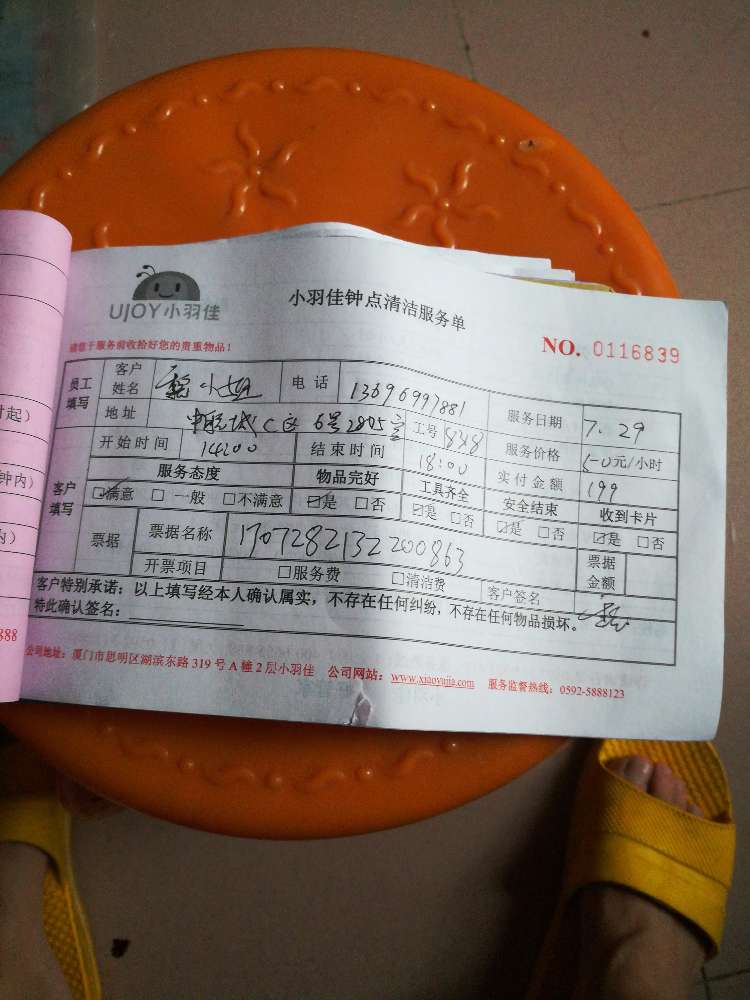 UJOY小羽佳
小羽佳钟点清洁服务单
请您于服务前收拾好您的贵重物品!
NO. 0116839
员工填写 客户姓名 小姐 电话 13696997881 服务日期 7.29
地址 中航城C区6号2805室 工号 828 服务价格 50元/小时
客户填写 开始时间 14:00 结束时间 18:00 实付金额 199
服务态度 物品完好 工具齐全 安全结束 收到卡片
☑满意 □一般 □不满意 ☑是 □否 ☑是 □否 ☑是 □否 ☑是 □否
票据 票据名称 1707282132200863 票据金额
开票项目 □服务费 □清洁费 客户签名
客户特别承诺:以上填写经本人确认属实,不存在任何纠纷,不存在任何物品损坏。
特此确认签名:
公司地址:厦门市思明区湖滨东路319号A幢2层小羽佳 公司网站:www.xiaoyujia.com 服务监督热线:0592-5888123
时起)
钟内)
)
888